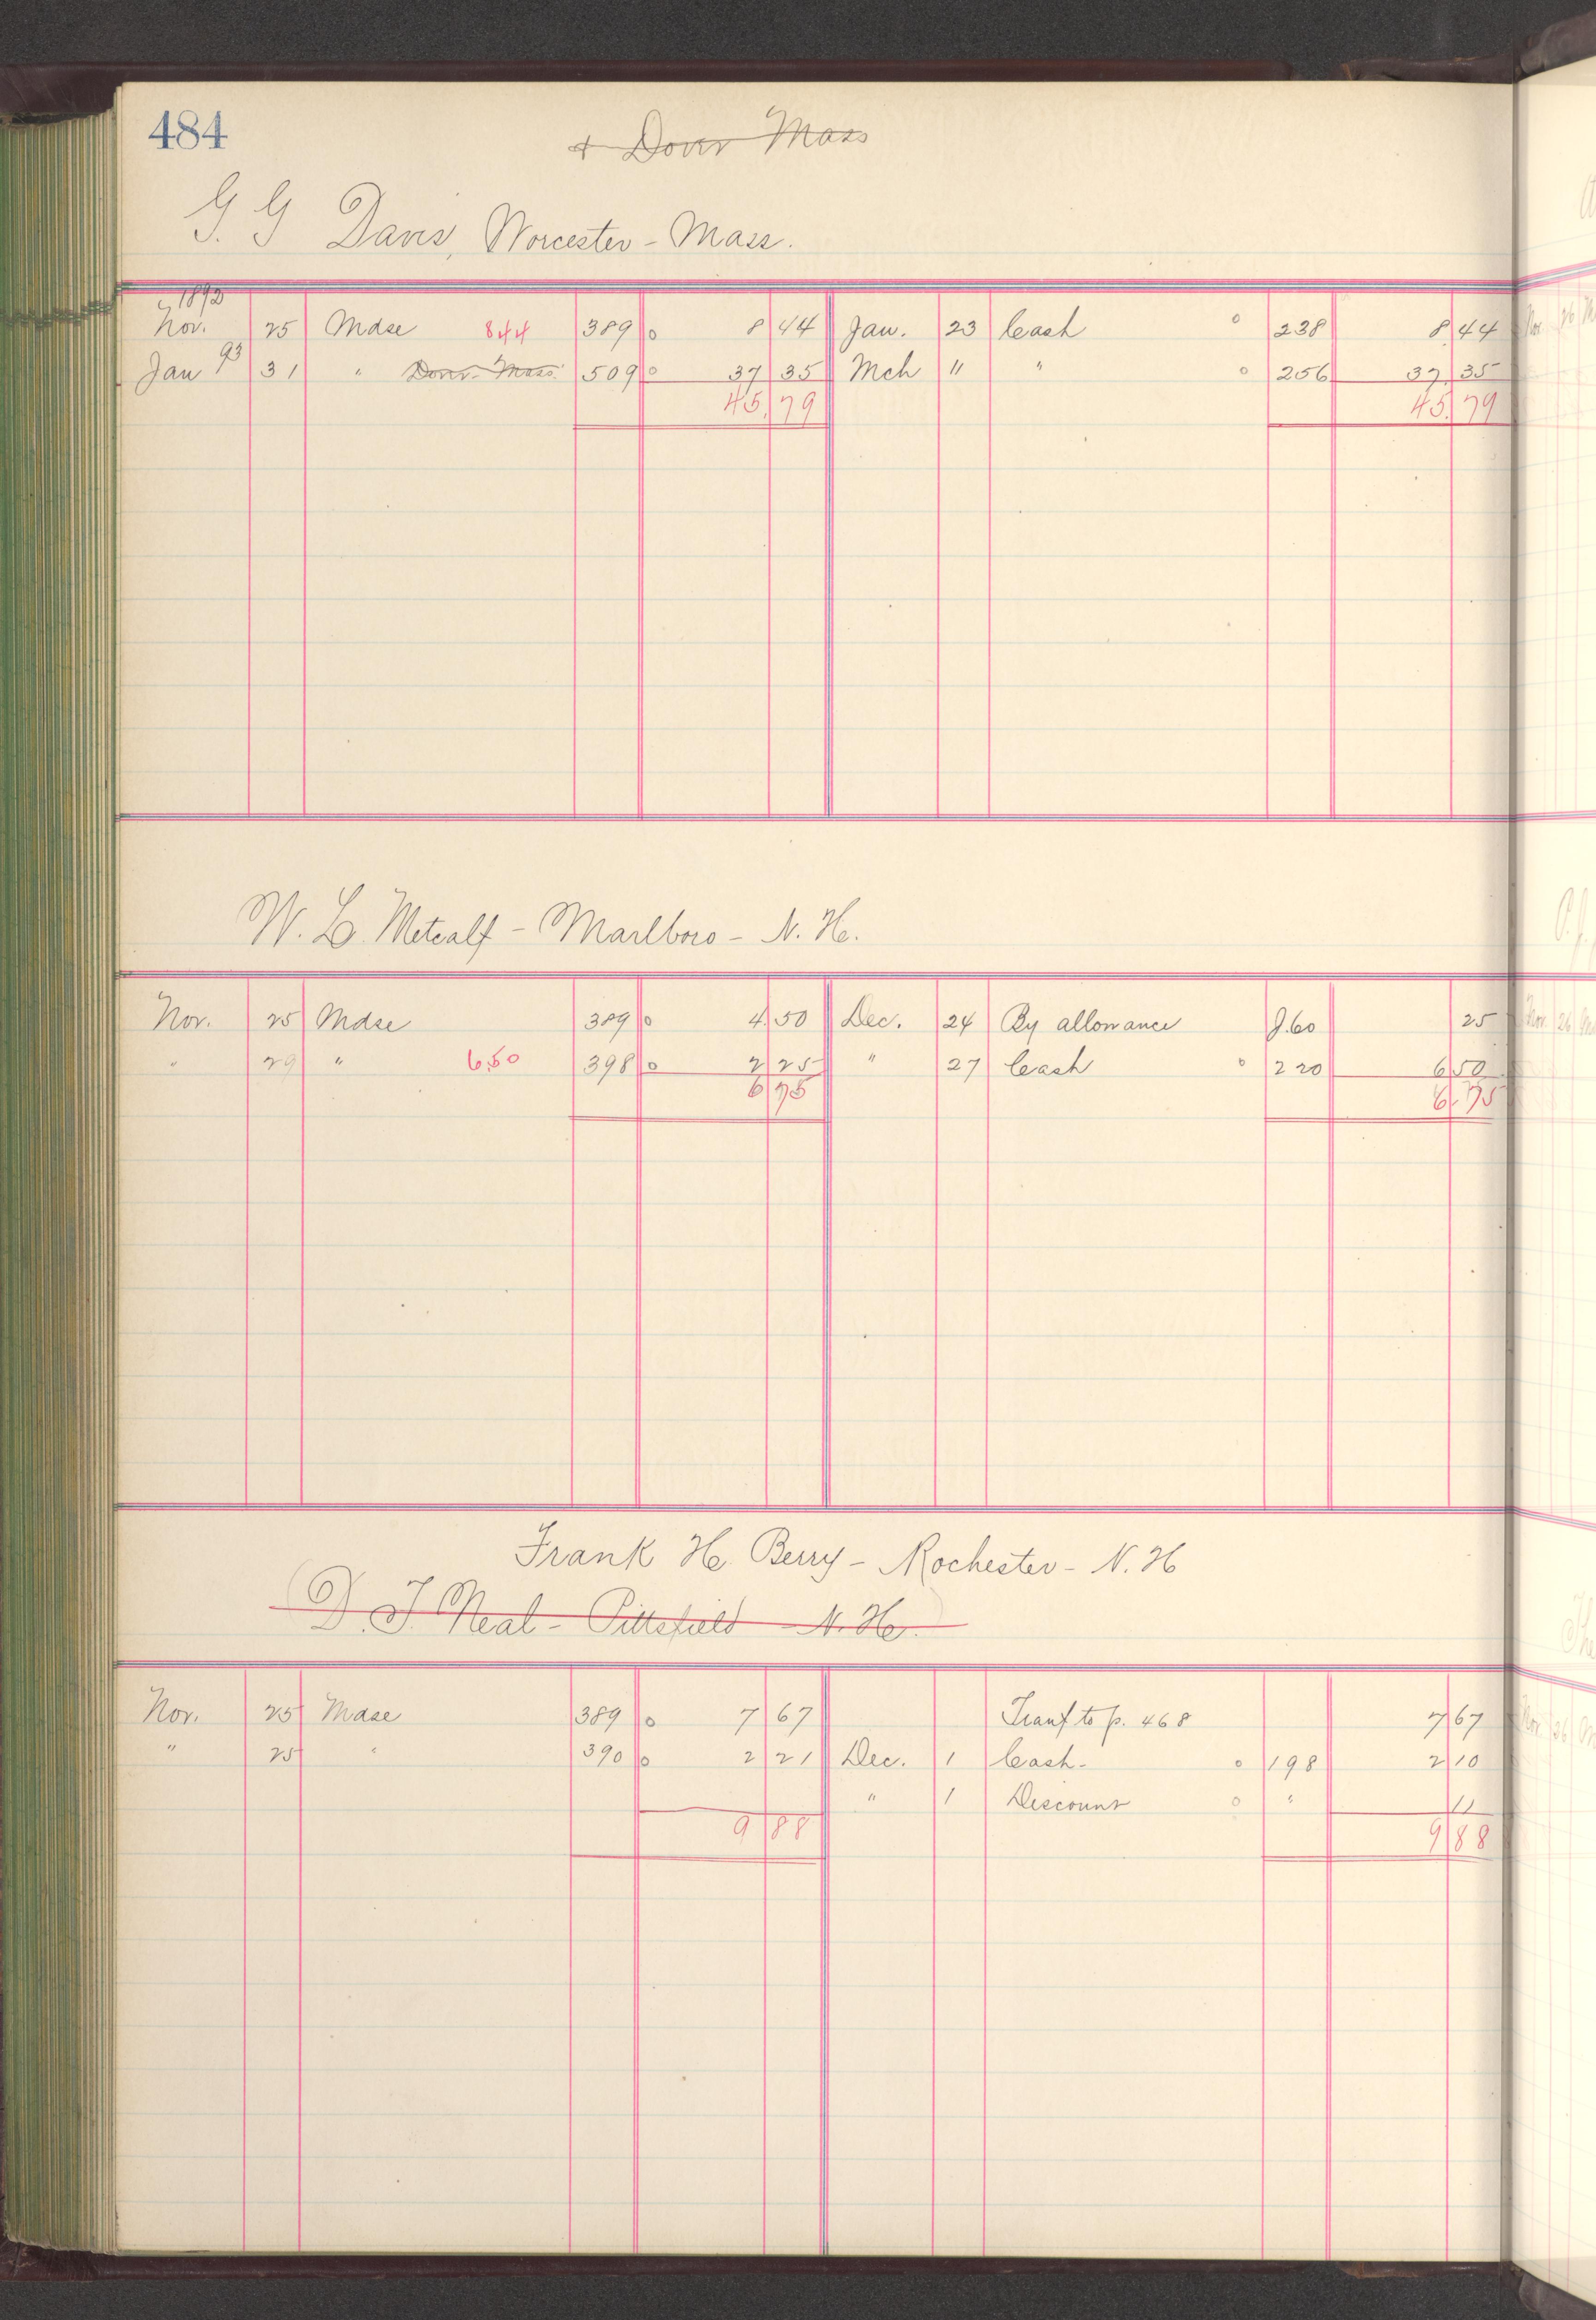 484
& Dover Mass
G. G Davis, Worcester - Mass.
1892
Nov. 25 Mdse 844 389 0 8 44 Jan. 23 Cash 0 238 8 44
Jan 93 31 " Dover Mass. 509 0 37 35 Mch 11 " 0 256 37 35
45.79 45.79
W. L. Metcalf - Marlboro - N. H.
Nov. 25 Mdse 389 0 4 50 Dec. 24 By allowance J.60 25
" 29 " 6.50 398 0 2 25 " 27 Cash 0 220 6 50
6 75 6.75
Frank H. Berry - Rochester - N. H
(D. J. Neal - Pittsfield N. H.)
Nov. 25 Mdse 389 0 7 67 Tranf to p. 468 7 67
" 25 " 390 0 2 21 Dec. 1 Cash - 0 198 2 10
" 1 Discount 0 " 11
9 88 9 88